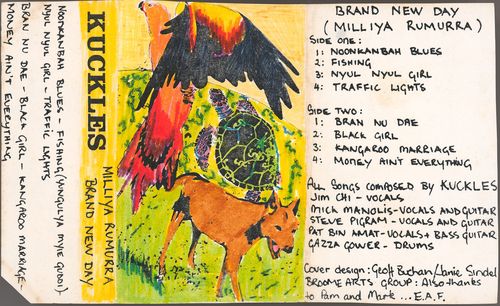 NOONKANBAH BLUES - FISHING (YANGULYA MYIE GUDOI)
NYUL NYUL GIRL - TRAFFIC LIGHTS
BRAN NU DAE - BLACK GIRL - KANGAROO MARRIAGE -
MONEY AIN'T EVERYTHING
KUCKLES
MILLIYA RUMURRA
BRAND NEW DAY
BRAND NEW DAY
(MILLIYA RUMURRA)
SIDE ONE:
1: NOONKANBAH BLUES
2: FISHING
3: NYUL NYUL GIRL
4: TRAFFIC LIGHTS
SIDE TWO:
1: BRAN NU DAE
2: BLACK GIRL
3: KANGAROO MARRIAGE
4: MONEY AIN'T EVERYTHING
ALL SONGS COMPOSED BY KUCKLES
JIM CHI - VOCALS
MICK MANOLIS - VOCALS AND GUITAR
STEVE PIGRAM - VOCALS AND GUITAR
PAT BIN AMAT - VOCALS + BASS GUITAR
GAZZA GOWER - DRUMS
Cover design: Geoff Buchan/Janie Sindel
BROOME ARTS GROUP: Also thanks
to Pam and Mark ... E.A.F.